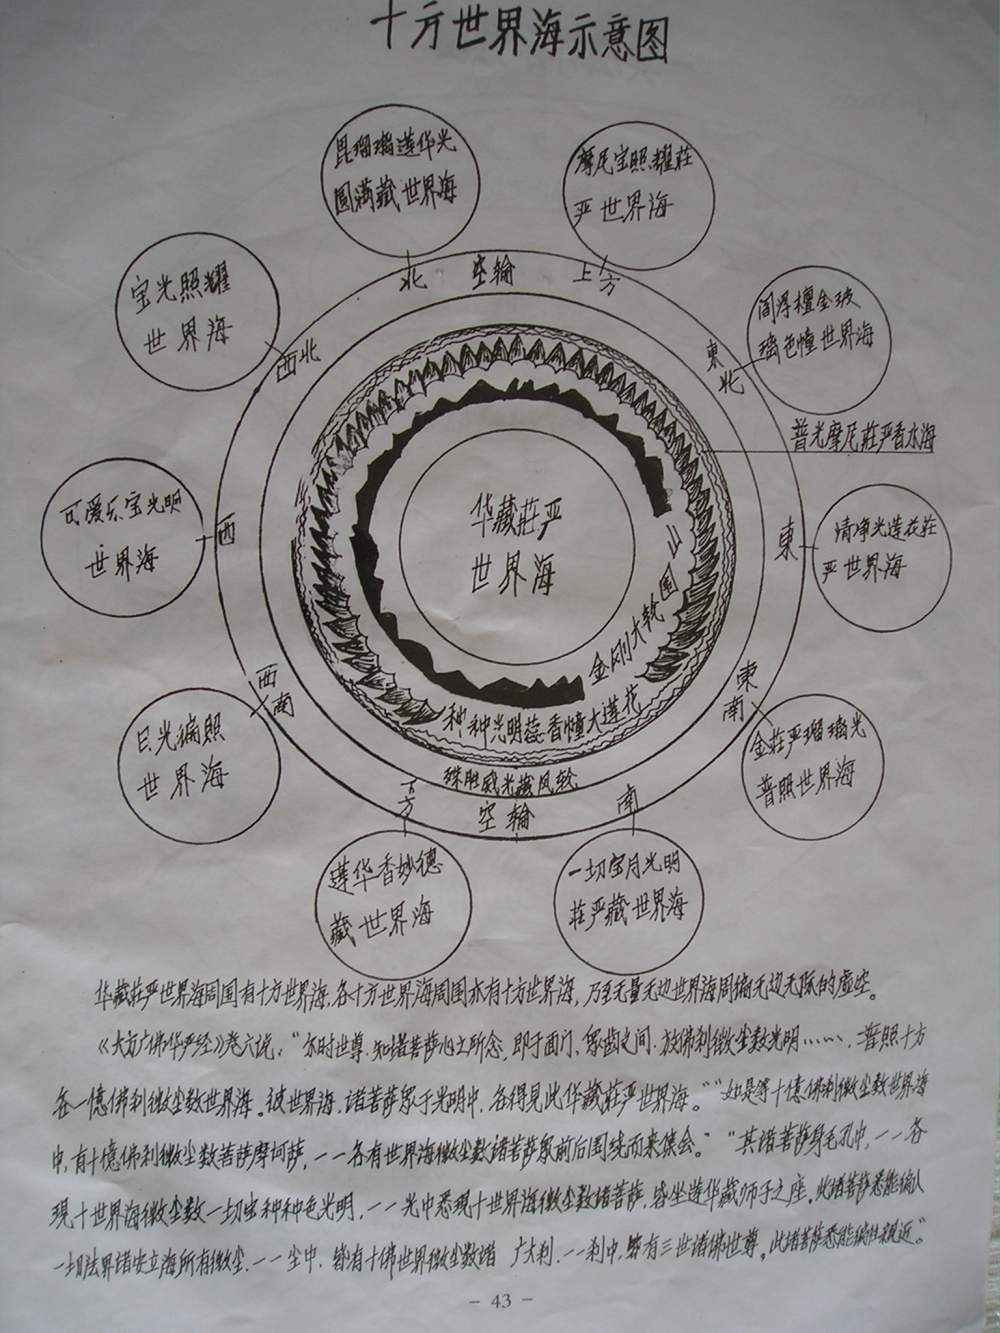 十方世界海示意图
毘瑠璃莲华光
圆满藏世界海
摩尼宝照耀莊
严世界海
宝光照耀
世界海
北
空輪
上方
西北
東北
阎浮檀金玻
璃色幢世界海
普光摩尼莊严香水海
可爱乐宝光明
世界海
西
華藏莊严
世界海
東
清净光莲花莊
严世界海
金刚大轮围
西南
東南
日光徧照
世界海
种种光明蕊香幢大莲花
金莊严瑠璃光
普照世界海
殊胜威光藏风轮
下方
空輪
南
莲华香妙德
藏世界海
一切宝月光明
莊严藏世界海
华藏莊严世界海周围有十方世界海，各十方世界海周围亦有十方世界海，乃至无量无边世界海周徧无边无际的虚空。
《大方广佛华严经》卷六说：“尔时世尊，知诸菩萨心之所念，即于面门、眾齿之间，放佛刹微尘数光明……，普照十方
各一億佛刹微尘数世界海。彼世界海，诸菩萨眾于光明中，各得見此华藏莊严世界海。”“如是等十億佛刹微尘数世界海
中，有十億佛刹微尘数菩萨摩柯萨，一一各有世界海微尘数诸菩萨眾前后围绕而来集会。”“其诸菩萨身毛孔中，一一各
現十世界海微尘数一切宝种种色光明，一一光中悉現十世界海微尘数诸菩萨，皆坐莲华藏师子之座。此诸菩萨悉能徧入
一切法界诸安立海所有微尘，一一尘中，皆有十佛世界微尘数诸 广大刹，一一刹中，皆有三世诸佛世尊。此诸菩萨悉能徧往親近。”
- 43 -